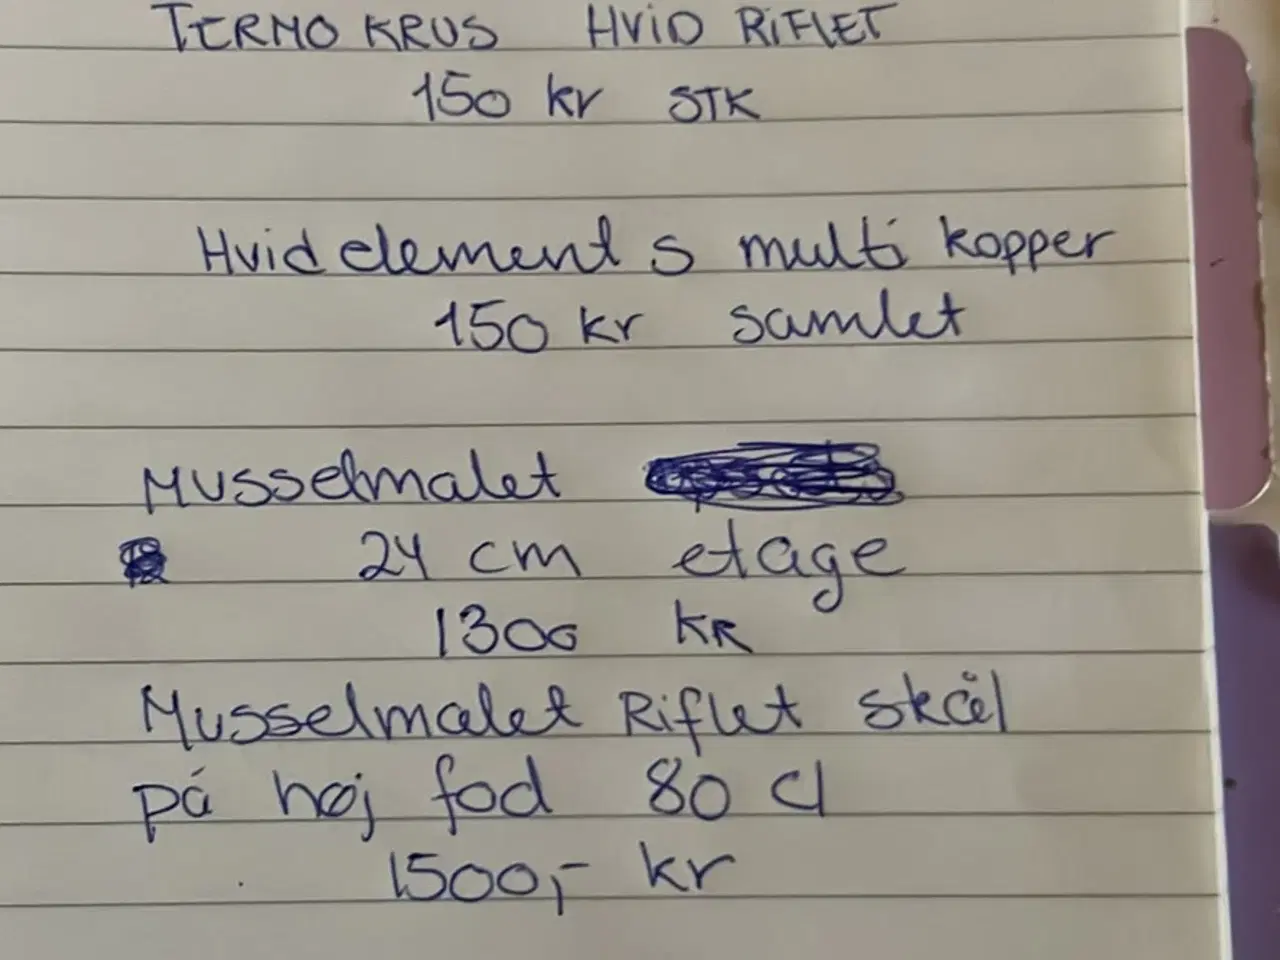 TERMO KRUS HVID RIFLET
150 kr STK
Hvid element s multi kopper
150 kr samlet
Musselmalet
24 cm etage
1300 KR
Musselmalet Riflet skål
på høj fod 80 cl
1500,- kr